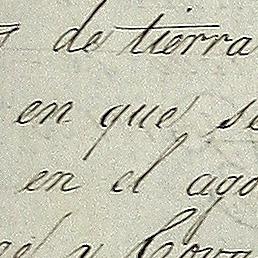 de tierra
en que se
en el ago
y Cova